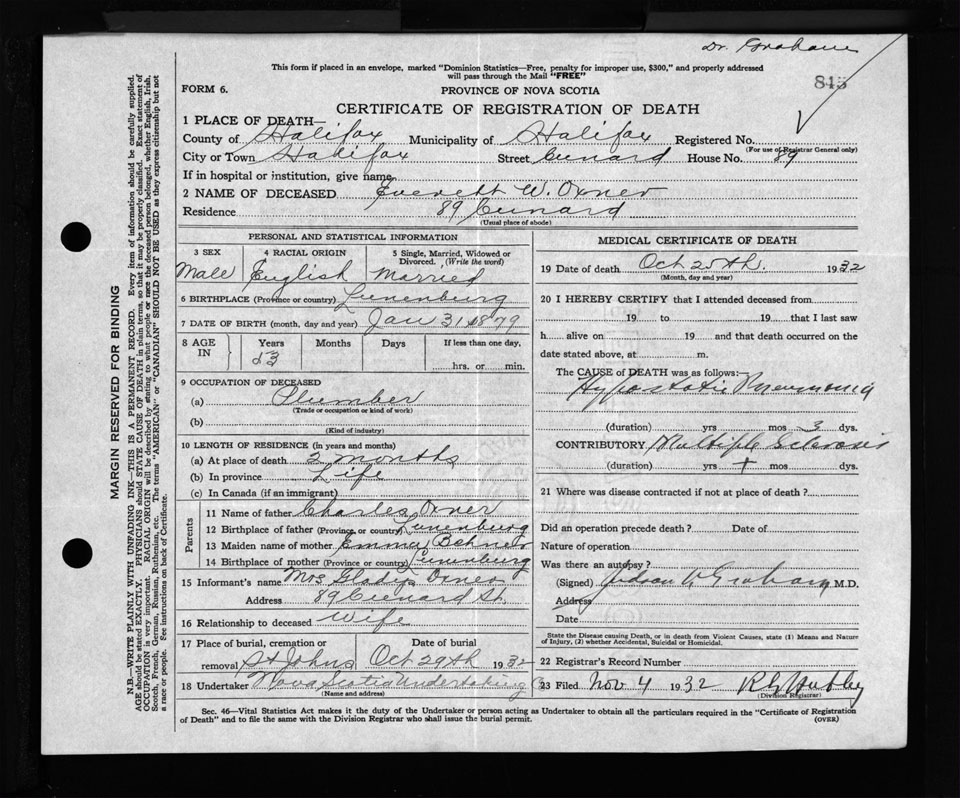 Dr. Graham
This form if placed in an envelope, marked "Dominion Statistics—Free, penalty for improper use, $300," and properly addressed
will pass through the Mail "FREE"
845
FORM 6.
PROVINCE OF NOVA SCOTIA
CERTIFICATE OF REGISTRATION OF DEATH
1 PLACE OF DEATH—
County of Halifax Municipality of Halifax Registered No.
(For use of Registrar General only)
City or Town Halifax Street Cunard House No. 89
If in hospital or institution, give name
2 NAME OF DECEASED Everett W. Oxner
Residence 89 Cunard
(Usual place of abode)
PERSONAL AND STATISTICAL INFORMATION
3 SEX Male
4 RACIAL ORIGIN English
5 Single, Married, Widowed or Divorced. (Write the word) Married
6 BIRTHPLACE (Province or country) Lunenburg
7 DATE OF BIRTH (month, day and year) Jan 31 1879
8 AGE IN Years 53 Months Days If less than one day, hrs. or min.
9 OCCUPATION OF DECEASED
(a) Plumber
(Trade or occupation or kind of work)
(b)
(Kind of industry)
10 LENGTH OF RESIDENCE (in years and months)
(a) At place of death 2 months
(b) In province Life
(c) In Canada (if an immigrant)
Parents
11 Name of father Charles Oxner
12 Birthplace of father (Province or country) Lunenburg
13 Maiden name of mother Emma
14 Birthplace of mother (Province or country) Lunenburg
15 Informant's name Mrs Gladys Oxner
Address 89 Cunard St.
16 Relationship to deceased Wife
17 Place of burial, cremation or removal St Johns
Date of burial Oct 29th 1932
18 Undertaker Nova Scotia Undertaking Co
(Name and address)
MEDICAL CERTIFICATE OF DEATH
19 Date of death Oct 25th. 1932
(Month, day and year)
20 I HEREBY CERTIFY that I attended deceased from
19 to 19 that I last saw
h alive on 19 and that death occurred on
date stated above, at m.
The CAUSE of DEATH was as follows:
Hypostatic Pneumonia
(duration) yrs mos 3 dys.
CONTRIBUTORY Multiple Sclerosis
(duration) yrs + mos dys.
21 Where was disease contracted if not at place of death ?
Did an operation precede death ? Date of
Nature of operation
Was there an autopsy ?
(Signed) Judson V Graham M.D.
Address
Date
State the Disease causing Death, or in death from Violent Causes, state (1) Means and Nature
of Injury, (2) whether Accidental, Suicidal or Homicidal.
22 Registrar's Record Number
23 Filed Nov 4 1932
(Division Registrar)
Sec. 46—Vital Statistics Act makes it the duty of the Undertaker or person acting as Undertaker to obtain all the particulars required in the "Certificate of Registration
of Death" and to file the same with the Division Registrar who shall issue the burial permit.
(OVER)
MARGIN RESERVED FOR BINDING
N.B.—WRITE PLAINLY WITH UNFADING INK—THIS IS A PERMANENT RECORD. Every item of information should be carefully supplied.
AGE should be stated EXACTLY. PHYSICIANS should STATE CAUSE OF DEATH in plain terms, so that it may be properly classified. Exact statement of
OCCUPATION is very important. RACIAL ORIGIN will be described by stating to what people or race the deceased person belonged, whether English, Irish,
Scotch, French, German, Russian, Ruthenian, etc. The terms "AMERICAN" or "CANADIAN" SHOULD NOT BE USED as they express citizenship but not
a race or people. See instructions on back of Certificate.